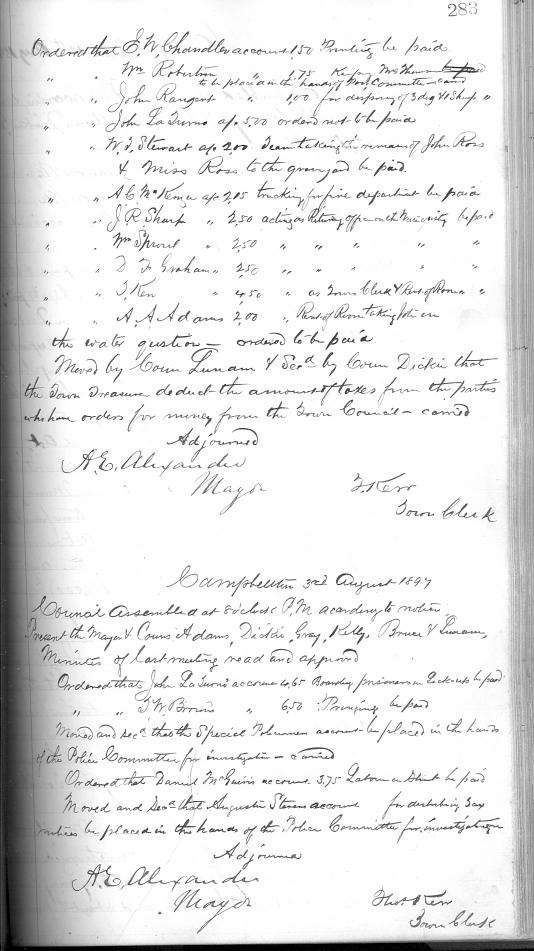 283
Ordered that E. W. Chandler account 1.50 Printing be paid
" " Wm Robertson " 1.75 Keeping Mrs
to be placed in the hands of Poor Committee - carried
" " John Rangert " 1.00 for disposing of 3 dog & 1 Sheep "
" " John La Turno a/c 5.00 ordered not to be paid
" " W. J. Stewart a/c 2.00 Team taking the remains of John Ross
& Miss Ross to the graveyard be paid.
" " A C McKenzie a/c 2.05 trucking for fire department be paid
" " J. R. Sharp " 2.50 acting as Retiring officer on the be paid
" " Wm Sproul " 2.50 " " " " "
" " D F Graham " 2.50 " " " "
" " T. Kerr " 4.50 " as Town Clerk & Rent of Room " "
" " A. A Adams 2.00 " Rent of Room taking Vote on
the water question - ordered to be paid
Moved by Coun Lunam & Secd by Coun Dickie that
the Town Treasurer deduct the amount of taxes from the parties
who have orders for money from the Town Council - carried
Adjourned
A. E. Alexander
Mayor T. Kerr
Town Clerk
Campbellton 3rd August 1897
Council Assembled at 8 oclock P.M according to notice
Present the Mayor & Couns Adams, Dickie, Gray, Kelly, Bruce & Lunam,
Minutes of last meeting read and approved
Ordered that John La Turno's account 4.65 Boarding prisoners in Lock-up be paid
" " T. W. Brown's " 6.50 : be paid
Moved and secd that the Special Policemen account be placed in the hands
of the Police Committee for investigation - carried
Ordered that Daniel McGuire's account 3.75 Labour on Street be paid
Moved and Secd that Augustin Stevens account for distributing Tax
notices be placed in the hands of the Police Committee for investigation
Adjourned
A. E. Alexander
Mayor Thos Kerr
Town Clerk